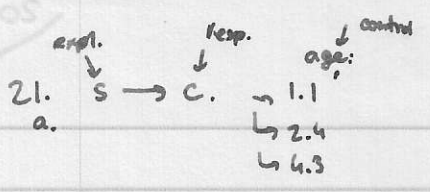 expl. resp. control
age:
21. S → C. → 1.1
a. ↳ 2.4
↳ 4.3